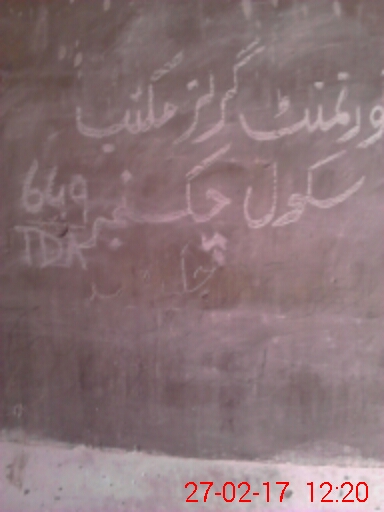 ورنمنٹ گرلز مکتب
سکول چک نمبر 649
TDA
27-02-17 12:20